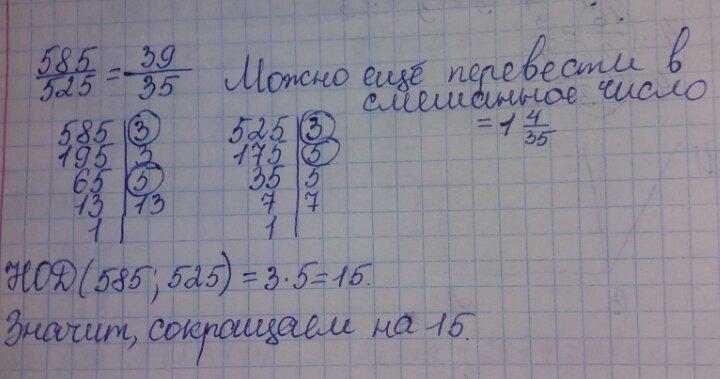 585/525 = 39/35 Можно ещё перевести в
смешанное число
= 1 4/35
585 | 3
195 | 3
65 | 5
13 | 13
1 |
525 | 3
175 | 5
35 | 5
7 | 7
1 |
НОД(585; 525) = 3·5=15.
Значит, сокращаем на 15.